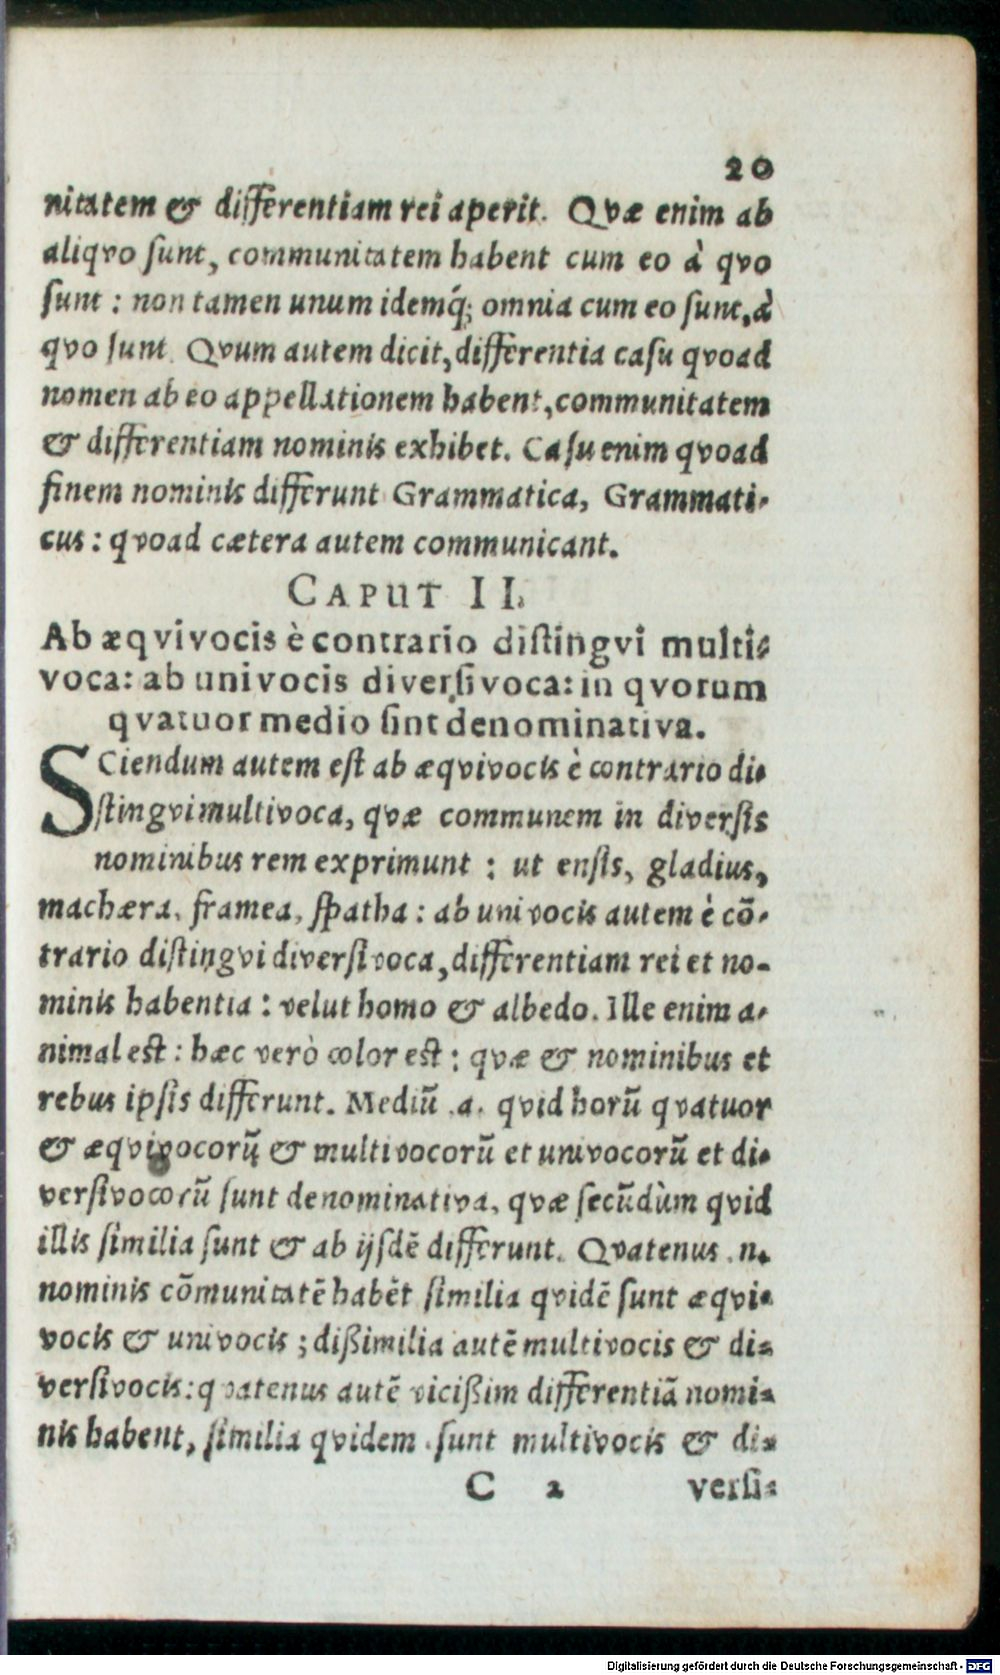 20
nitatem & differentiam rei aperit. Qvæ enim ab
aliqvo ſunt, communitatem habent cum eo à qvo
ſunt : non tamen unum idemq́; omnia cum eo ſunt, à
qvo ſunt. Qvum autem dicit, differentia caſu qvoad
nomen ab eo appellationem habent, communitatem
& differentiam nominis exhibet. Caſu enim qvoad
finem nominis differunt Grammatica, Grammati-
cus : qvoad cætera autem communicant.
CAPUT II.
Ab æqvivocis è contrario diſtingvi multi-
voca: ab univocis diverſivoca: in qvorum
qvatuor medio ſint denominativa.
SCiendum autem eſt ab æqvivocis è contrario di-
ſtingvi multivoca, qvæ communem in diverſis
nominibus rem exprimunt : ut enſis, gladius,
machæra, framea, ſpatha : ab univocis autem è cõ-
trario diſtingvi diverſivoca, differentiam rei et no-
minis habentia : velut homo & albedo. Ille enim a-
nimal eſt : hæc verò color eſt : qvæ & nominibus et
rebus ipſis differunt. Mediũ .a. qvid horũ qvatuor
& æqvivocorũ & multivocorũ et univocorũ et di-
verſivocorũ ſunt denominativa, qvæ ſecũdùm qvid
illis ſimilia ſunt & ab ijſdẽ differunt. Qvatenus .n.
nominis cõmunitatẽ habẽt ſimilia qvidẽ ſunt æqvi-
vocis & univocis ; dißimilia autẽ multivocis & di-
verſivocis: qvatenus autẽ vicißim differentiã nomi-
nis habent, ſimilia qvidem ſunt multivocis & di-
C 2 verſi-
Digitalisierung gefördert durch die Deutsche Forschungsgemeinschaft - DFG